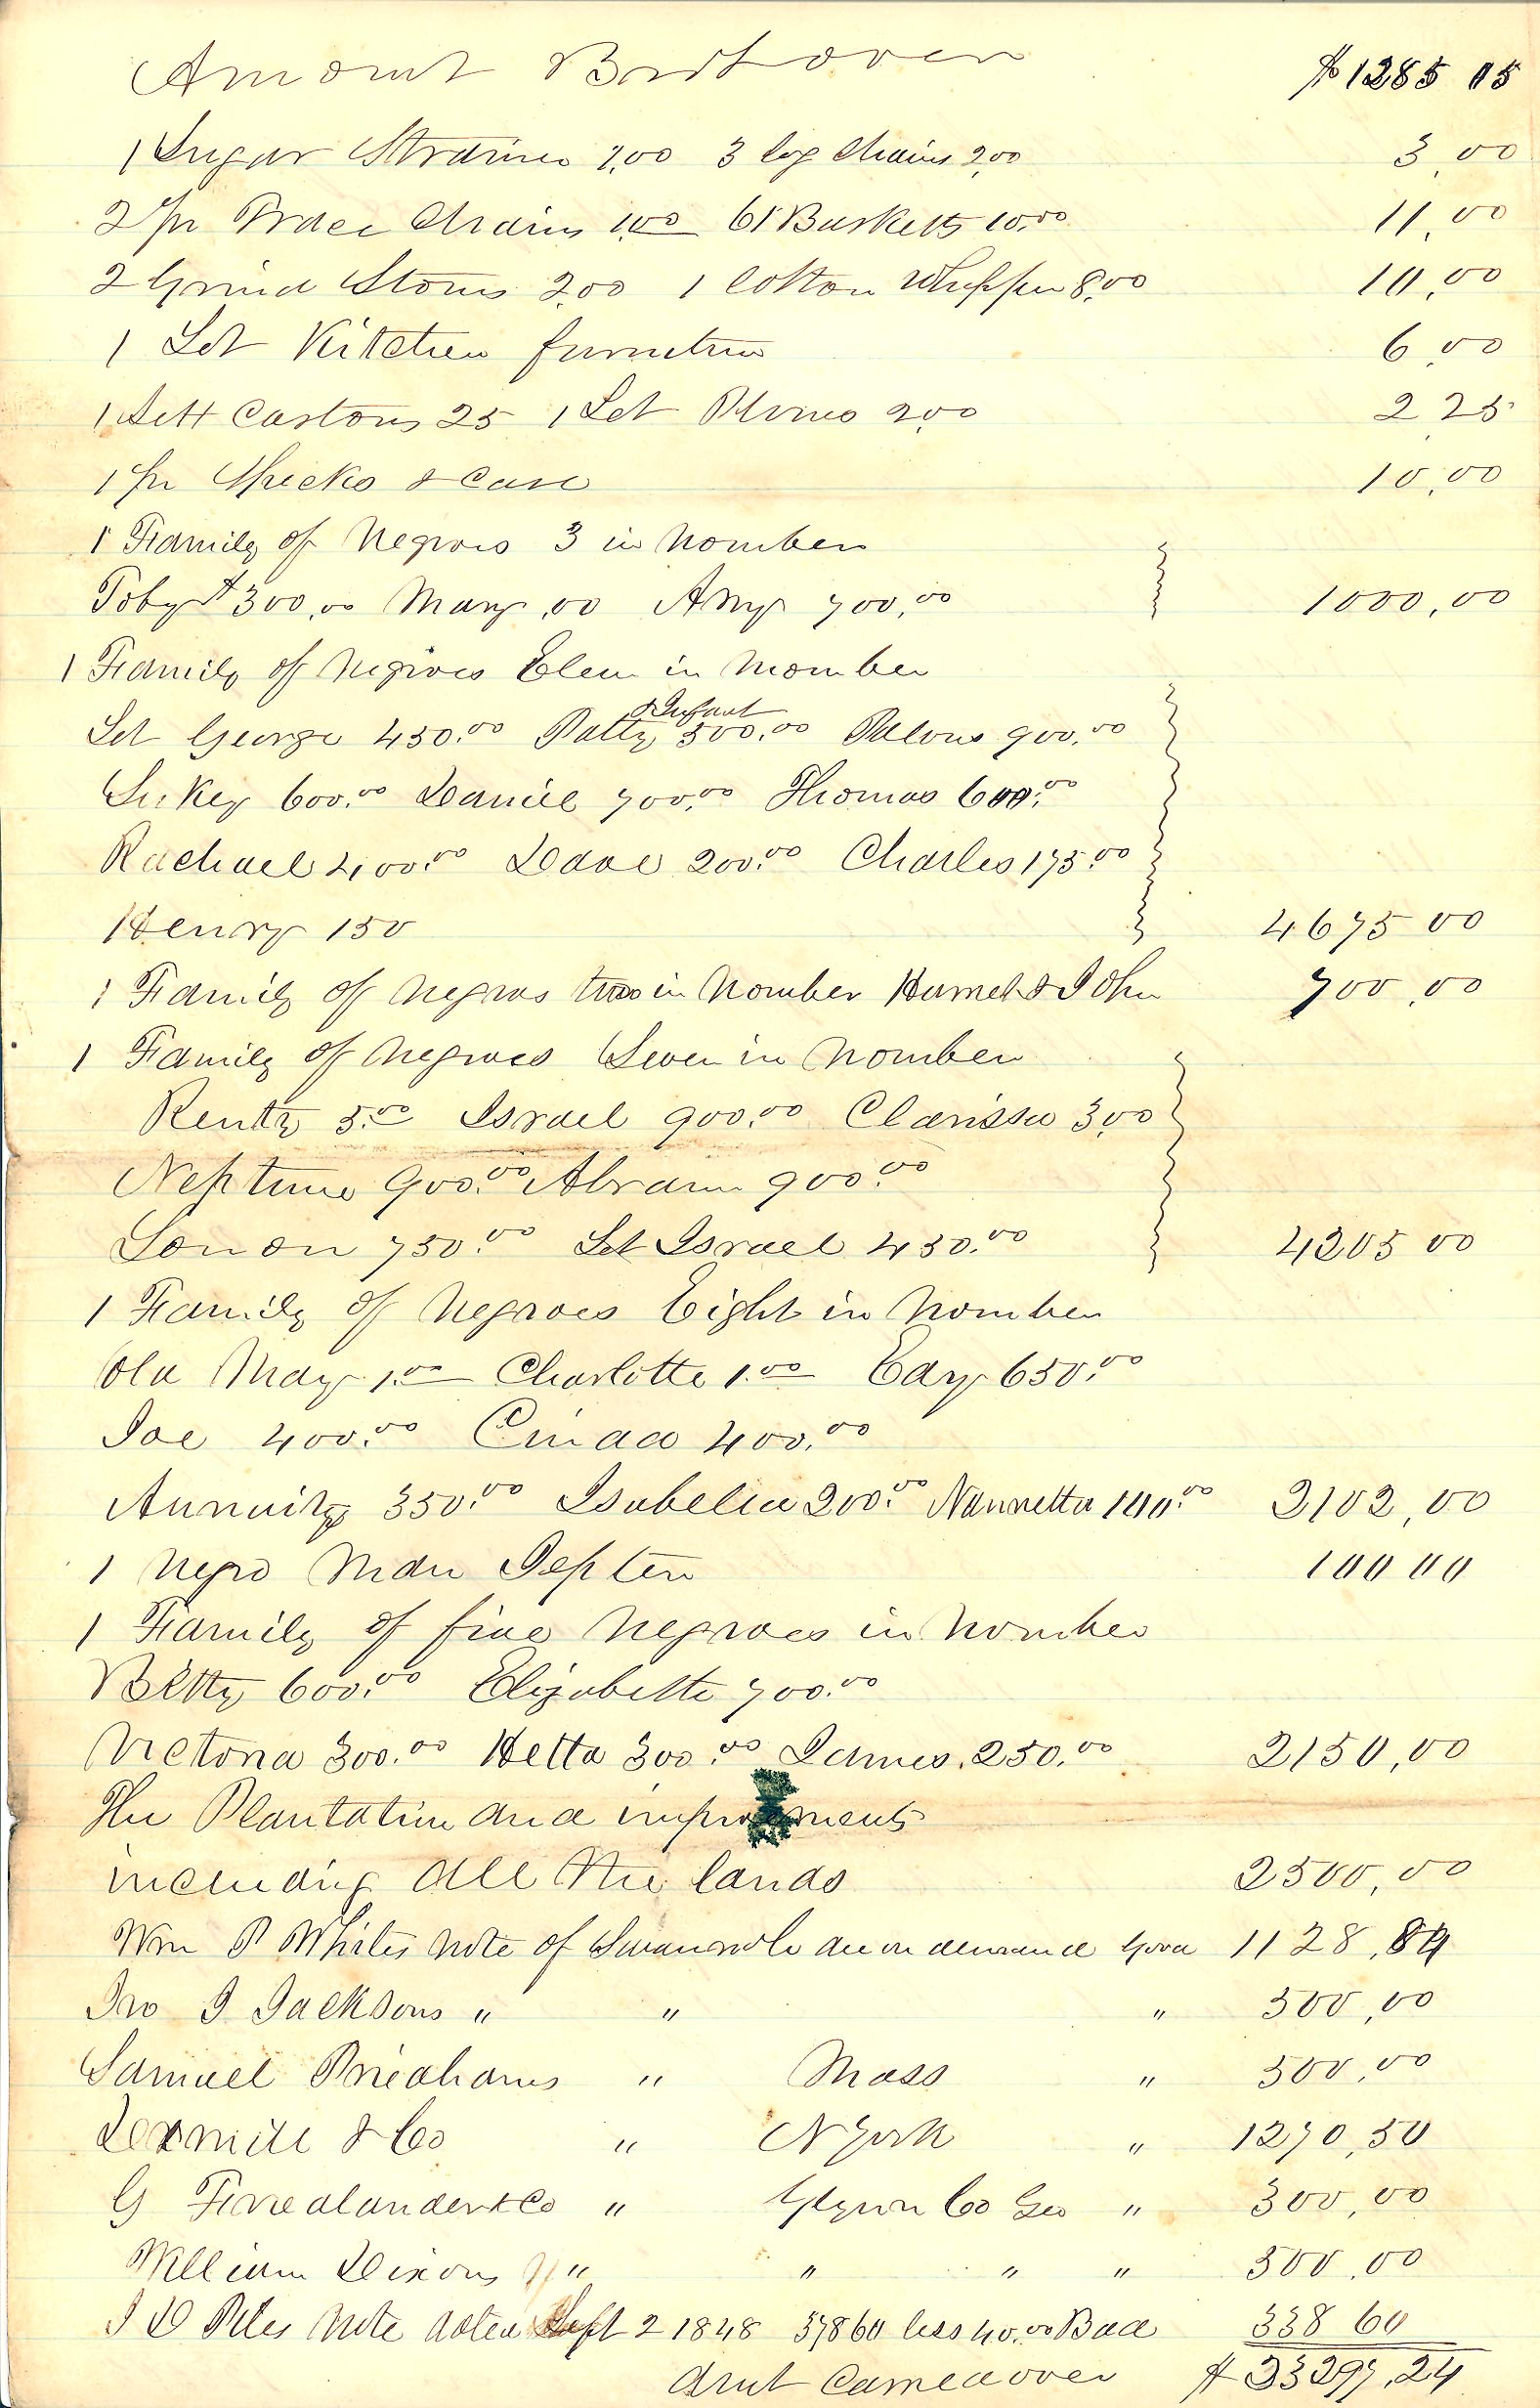 Amount Brot over $1285 15
1 Sugar Strainer 1,00 3 log Chains 2,00 3,00
2 pr Trace Chains 1,00 61 Basketts 10,00 11,00
2 Grind Stones 2,00 1 Cotton Whipper 8,00 10,00
1 Lot Kitchen furniture 6,00
1 Sett Castors 25 1 Lot 2,00 2,25
1 pr Specks & Case 10,00
1 Family of Negroes 3 in Nomber
Toby $300,00 Mary ,00 Amy 700,00 1000,00
1 Family of Negroes Eleven in Nomber
Lit George 450.00 Patty & Infant 500.00 900.00
Sukey 600.00 Daniel 700.00 Thomas 600.00
Rachael 400.00 Dave 200.00 Charles 175.00
Henry 150 4675 00
1 Family of Negros two in Nomber & John 700,00
1 Family of Negroes Seven in Nomber
5.00 Israel 900.00 Clarissa 300
Neptune 900.00 Abram 900.00
London 750.00 Lit Israel 450.00 4205 00
1 Family of Negroes Eight in Nomber
Old May 1.00 Charlotte 1.00 Edy 650.00
Joe 400.00 400.00
350.00 Isabella 200.00 Nannetta 100.00 2102,00
1 Negro Man 100 00
1 Family of five Negroes in Nomber
Betty 600.00 Elizabeth 700.00
Victoria 300.00 Hetta 300.00 James 250.00 2150,00
The Plantation and improvements
including all the lands 2500,00
Wm P Whites Note of due on demand Good 1128,89
Jno J Jacksons " " " 500,00
Samuel " Mass " 500,00
& Co " N York " 1270,50
G & Co " Glynn Co Geo " 300,00
William Dixons " " " " 500,00
J D Piles Note dated Sept 2 1848 37860 less 40.00 Bad 338 60
Amt Carried over $33297,24